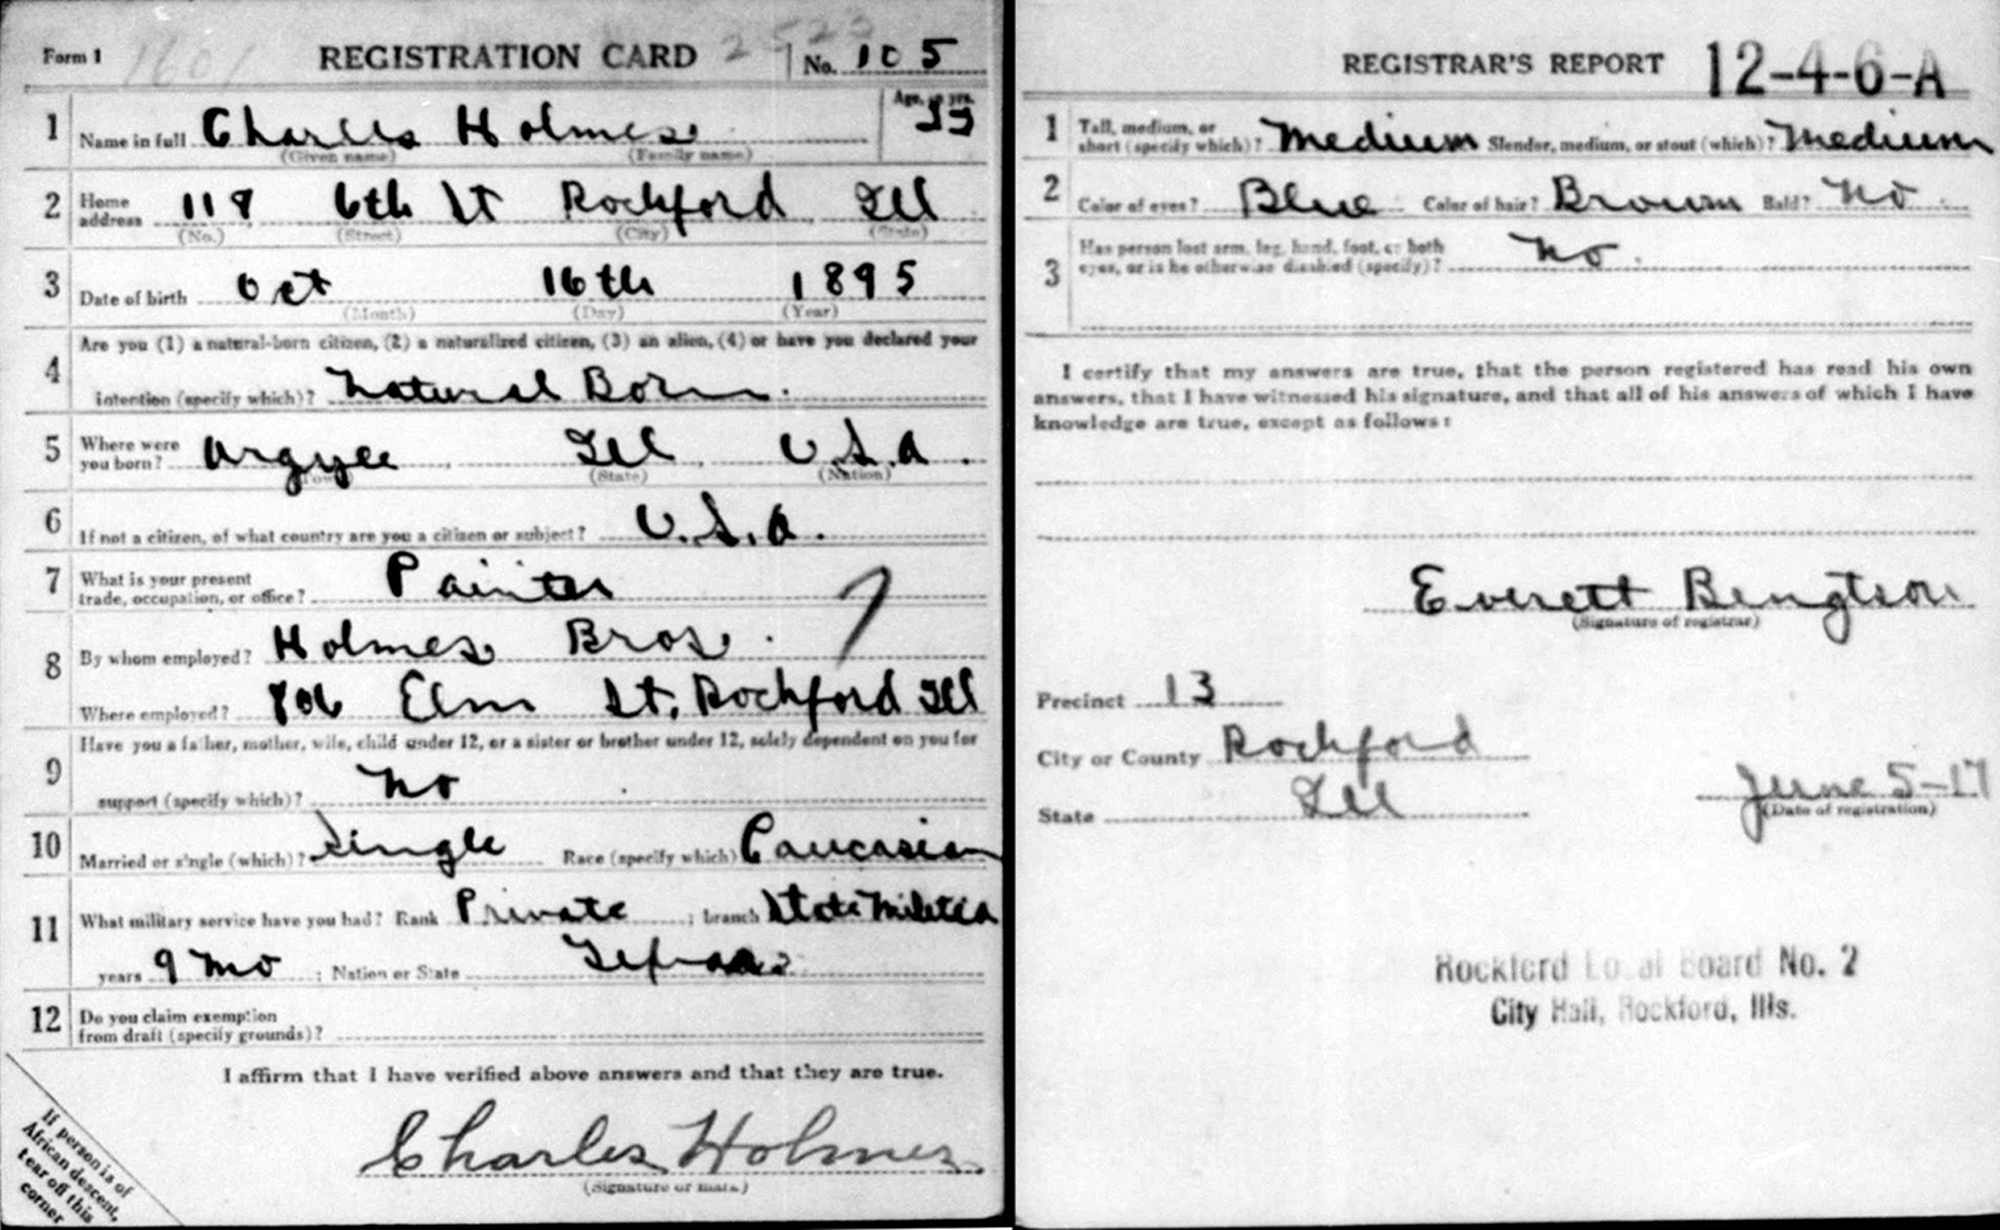 Form 1 1601 REGISTRATION CARD 2523 No. 105
1 Name in full Charles Holmes Age, in yrs.
(Given name) (Family name)
2 Home address 118 6th St Rockford Ill
(No.) (Street) (City) (State)
3 Date of birth Oct 16th 1895
(Month) (Day) (Year)
4 Are you (1) a natural-born citizen, (2) a naturalized citizen, (3) an alien, (4) or have you declared your
intention (specify which)? Natural Born.
5 Where were you born? Argyle Ill U.S.A.
(Town) (State) (Nation)
6 If not a citizen, of what country are you a citizen or subject? U.S.A.
7 What is your present trade, occupation, or office? Painter
8 By whom employed? Holmes Bros.
Where employed? 806 Elm St. Rockford Ill
9 Have you a father, mother, wife, child under 12, or a sister or brother under 12, solely dependent on you for
support (specify which)? No
10 Married or single (which)? Single Race (specify which) Caucasian
11 What military service have you had? Rank Private ; branch State Militia
years 9 mo ; Nation or State
12 Do you claim exemption
from draft (specify grounds)?
I affirm that I have verified above answers and that they are true.
Charles Holmes
(Signature or mark)
If person is of
African descent,
tear off this
corner
REGISTRAR'S REPORT 12-4-6-A
1 Tall, medium, or short (specify which)? Medium Slender, medium, or stout (which)? Medium
2 Color of eyes? Blue Color of hair? Brown Bald? No
3 Has person lost arm, leg, hand, foot, or both
eyes, or is he otherwise disabled (specify)? No.
I certify that my answers are true, that the person registered has read his own
answers, that I have witnessed his signature, and that all of his answers of which I have
knowledge are true, except as follows:
Everett Bengtson
(Signature of registrar)
Precinct 13
City or County Rockford
State Ill June 5-17
(Date of registration)
Rockford Local Board No. 2
City Hall, Rockford, Ills.